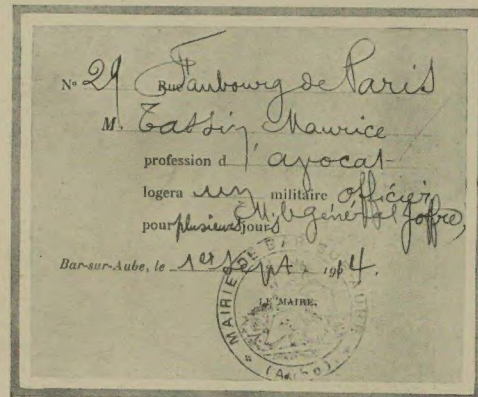 N° 29 Rue Faubourg de Paris
M. Tassin Maurice
profession d'avocat
logera un militaire officier
M. le général Joffre,
pour plusieurs jours
Bar-sur-Aube, le 1er Sept. 1914.
LE MAIRE,
MAIRIE DE BAR-SUR-AUBE
(Aube)